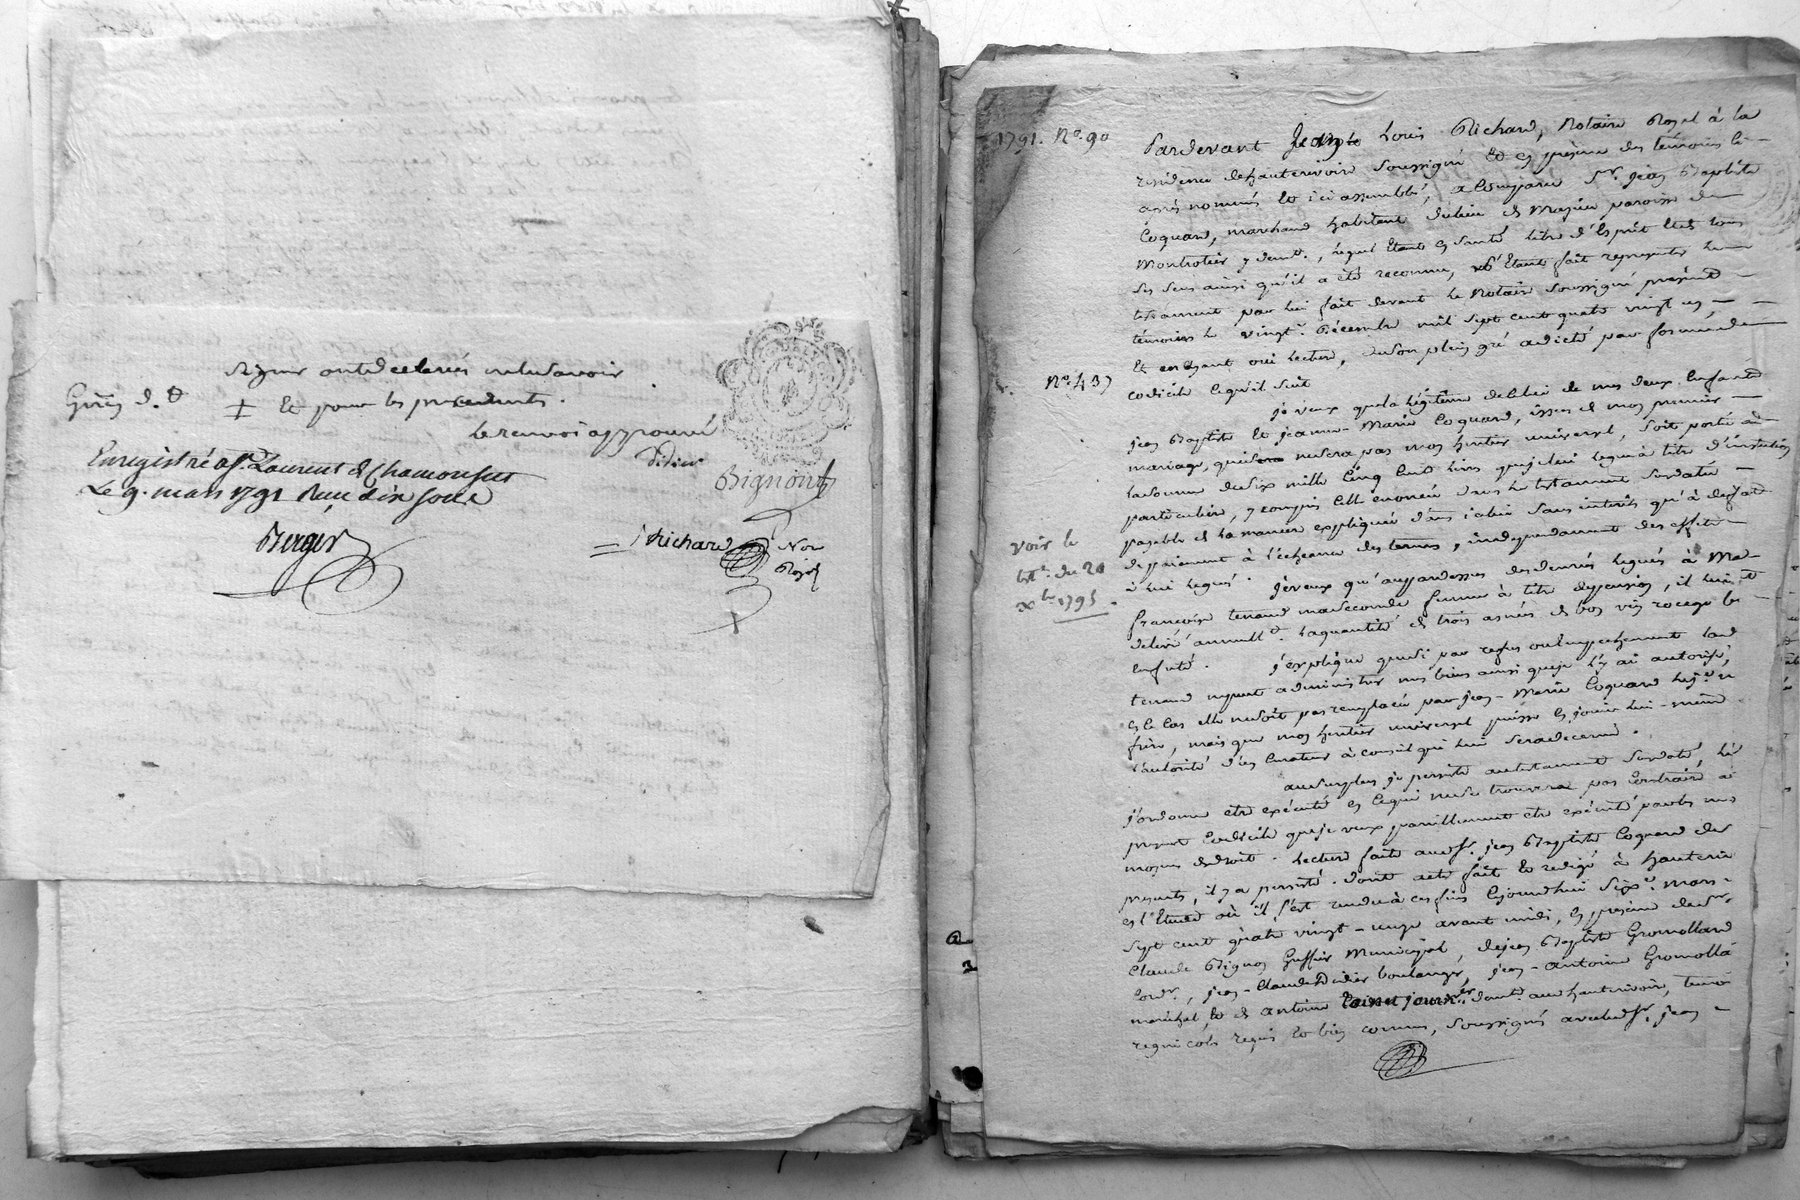 signer ont déclaré ne le savoir
Gnés d. d
+ Et pour les précédents.
Le renvoi approuvé
Enregistré a St. Laurent de Chamousset
Le 9. mars 1791 Reçu dix sous
Berger
Didier
Bignon
Richard Nore
Royal
1791. No. 90
Pardevant Jean Louis Richard, Notaire Royal à la
residence de hauterivoire soussigné Et en présence des témoins ci-
après nommés Et ici assemblés, a Comparu Sr. jean Baptiste
Coquard, marchand habitant du lieu de paroisse de
Montrotier y demt., lequel Etant en santé, libre d'Esprit Et de tous
ses sens ainsi qu'il a été reconnu, s'Etant fait representer le
testament par lui fait devant le Notaire soussigné présents
témoins le vingt Décembre mil sept cent quatre vingt
Et en ayant oui lecture, de son plein gré a dicté par forme de
No. 437
codicile ce qu'il suit
je veux que la légitime de celui de mes deux Enfants
jean Baptiste Et jeanne-Marie Coquard, issus de mon premier
mariage, qui ne sera pas mon héritier universel, soit porté à
la somme de six mille Cinq Cents livres que je lui legue à titre d'institution
particulière, y compris Celle énoncée dans le testament susdaté
payable de la maniere expliquée dans icelui sans intérêts qu'à défaut
voir le
tt. du 20
xbre 1795
de paiement à l'échéance des termes, independamment des effets
à lui legués. je veux qu'au par dessus des denrées leguées à Ma-
françoise tenand ma seconde femme à titre de pension, il lui soit
délivré annuellt. la quantité de trois asnées de bon vin
j'explique que si par refus ou Empechement lad.
tenand ne peut administrer mes biens ainsi que je l'y ai autorisé,
En ce Cas elle ne soit pas remplacée par jean-Marie Coquard
frère, mais que mon héritier universel puisse En jouir lui-même
l'autorité d'un Curateur à conseil qui lui sera decerné.
au surplus je persiste au testament susdaté,
j'ordonne etre exécuté En ce qui ne se trouvera pas Contraire à
présent Codicile que je veux pareillement etre exécuté par les
moyens de droit. Lecture faite aud. Sr. jean Baptiste Coquard des
présents, il y a persisté. dont acte fait Et redigé à hauterivoire
En l'Etude où il s'est rendu à ces fins Cejourd'hui Six mars
sept cent quatre vingt-onze avant midi, En présence de Sr.
Claude Bignon Greffier Municipal, de jean Baptiste Gromollard
Cord., jean-Claude Didier boulanger, jean-antoine Gromollard
maréchal, Et de antoine journr. demt. aud. hauterivoire, témoins
requis Et bien connus, soussignés avec led. Sr. jean